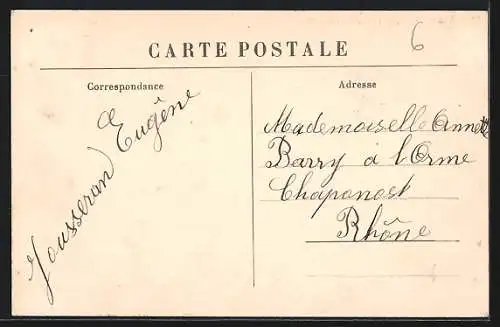 6
CARTE POSTALE
Correspondance
Adresse
Jousseran Eugêne
Mademoiselle Annette
Barry à l'Orme
Chaponost
Rhône